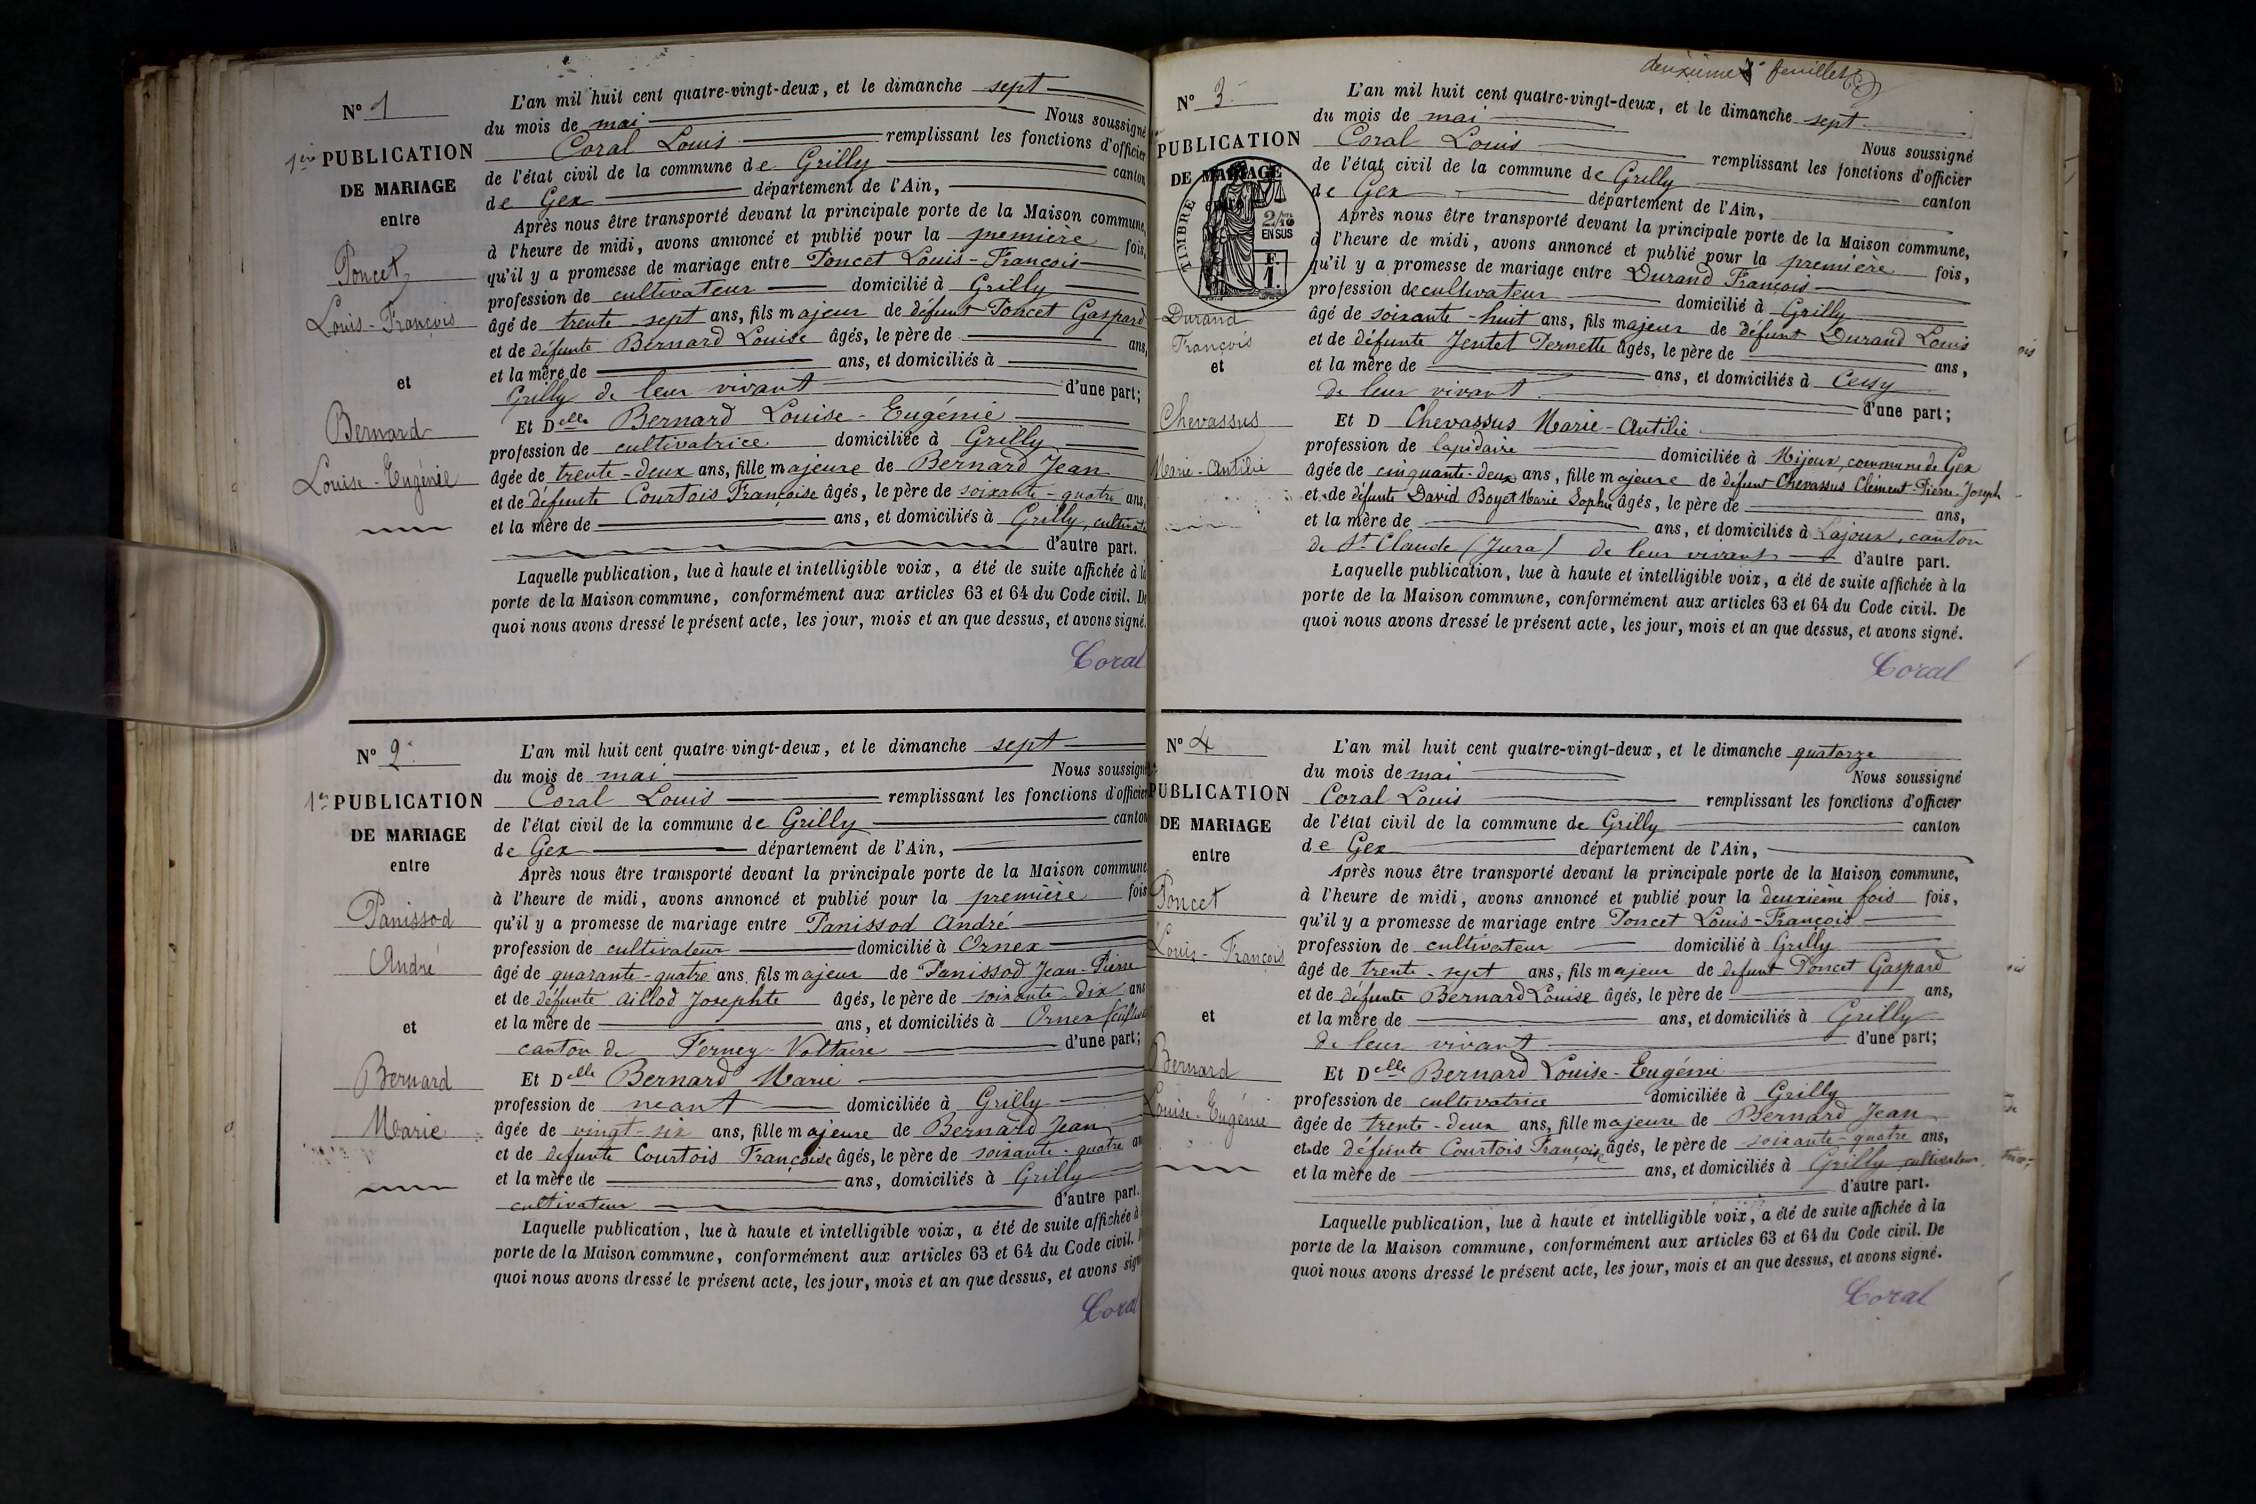 N° 1
1ère PUBLICATION
DE MARIAGE
entre
Poncet
Louis-François
et
Bernard
Louise-Eugénie
L'an mil huit cent quatre-vingt-deux, et le dimanche sept
du mois de mai Nous soussigné
Coral Louis remplissant les fonctions d'officier
de l'état civil de la commune de Grilly canton
de Gex département de l'Ain,
Après nous être transporté devant la principale porte de la Maison commune,
à l'heure de midi, avons annoncé et publié pour la première fois,
qu'il y a promesse de mariage entre Poncet Louis-François
profession de cultivateur domicilié à Grilly
âgé de trente-sept ans, fils majeur de défunt Poncet Gaspard
et de défunte Bernard Louise âgés, le père de ans,
et la mère de ans, et domiciliés à
Grilly de leur vivant d'une part;
Et Delle Bernard Louise-Eugénie
profession de cultivatrice domiciliée à Grilly
âgée de trente-deux ans, fille majeure de Bernard Jean
et de défunte Courtois Françoise âgés, le père de soixante-quatre ans,
et la mère de ans, et domiciliés à Grilly, cultivat
d'autre part.
Laquelle publication, lue à haute et intelligible voix, a été de suite affichée à la
porte de la Maison commune, conformément aux articles 63 et 64 du Code civil. De
quoi nous avons dressé le présent acte, les jour, mois et an que dessus, et avons signé.
Coral
N° 2
1ère PUBLICATION
DE MARIAGE
entre
Panissod
André
et
Bernard
Marie
L'an mil huit cent quatre vingt-deux, et le dimanche sept
du mois de mai Nous soussigné
Coral Louis remplissant les fonctions d'officier
de l'état civil de la commune de Grilly canton
de Gex département de l'Ain,
Après nous être transporté devant la principale porte de la Maison commune
à l'heure de midi, avons annoncé et publié pour la première fois
qu'il y a promesse de mariage entre Panissod André
profession de cultivateur domicilié à Ornex
âgé de quarante-quatre ans, fils majeur de Panissod Jean-Pierre
et de défunte Aillod Josephte âgés, le père de soixante-dix ans
et la mère de ans, et domiciliés à Ornex
canton de Ferney-Voltaire d'une part;
Et Delle Bernard Marie
profession de néant domiciliée à Grilly
âgée de vingt-six ans, fille majeure de Bernard Jean
et de défunte Courtois Françoise âgés, le père de soixante-quatre an
et la mère de ans, domiciliés à Grilly
cultivateur d'autre part.
Laquelle publication, lue à haute et intelligible voix, a été de suite affichée à
porte de la Maison commune, conformément aux articles 63 et 64 du Code civil.
quoi nous avons dressé le présent acte, les jour, mois et an que dessus, et avons sign
Coral
deuxième feuillet
N° 3
PUBLICATION
DE MARIAGE
entre
TIMBRE
2/10 EN SUS
F. 1.
Durand
François
et
Chevassus
Marie-Antilie
L'an mil huit cent quatre-vingt-deux, et le dimanche sept
du mois de mai Nous soussigné
Coral Louis remplissant les fonctions d'officier
de l'état civil de la commune de Grilly canton
de Gex département de l'Ain,
Après nous être transporté devant la principale porte de la Maison commune,
à l'heure de midi, avons annoncé et publié pour la première fois,
qu'il y a promesse de mariage entre Durand François
profession de cultivateur domicilié à Grilly
âgé de soixante-huit ans, fils majeur de défunt Durand Louis
et de défunte Jentet Pernette âgés, le père de ans,
et la mère de ans, et domiciliés à Cessy
de leur vivant d'une part;
Et D Chevassus Marie-Antilie
profession de lapidaire domiciliée à Mijoux, commune de Gex
âgée de cinquante-deux ans, fille majeure de défunt Chevassus Clément-Pierre-Joseph
et de défunte David Boyet Marie Sophie âgés, le père de ans,
et la mère de ans, et domiciliés à Lajoux, canton
de St Claude (Jura) de leur vivant d'autre part.
Laquelle publication, lue à haute et intelligible voix, a été de suite affichée à la
porte de la Maison commune, conformément aux articles 63 et 64 du Code civil. De
quoi nous avons dressé le présent acte, les jour, mois et an que dessus, et avons signé.
Coral
N° 4
PUBLICATION
DE MARIAGE
entre
Poncet
Louis-François
et
Bernard
Louise-Eugénie
L'an mil huit cent quatre-vingt-deux, et le dimanche quatorze
du mois de mai Nous soussigné
Coral Louis remplissant les fonctions d'officier
de l'état civil de la commune de Grilly canton
de Gex département de l'Ain,
Après nous être transporté devant la principale porte de la Maison commune,
à l'heure de midi, avons annoncé et publié pour la deuxième fois fois,
qu'il y a promesse de mariage entre Poncet Louis-François
profession de cultivateur domicilié à Grilly
âgé de trente-sept ans, fils majeur de defunt Poncet Gaspard
et de défunte Bernard Louise âgés, le père de ans,
et la mère de ans, et domiciliés à Grilly
de leur vivant d'une part;
Et Delle Bernard Louise-Eugénie
profession de cultivatrice domiciliée à Grilly
âgée de trente-deux ans, fille majeure de Bernard Jean
et de défunte Courtois Françoise âgés, le père de soixante-quatre ans,
et la mère de ans, et domiciliés à Grilly cultivateur
d'autre part.
Laquelle publication, lue à haute et intelligible voix, a été de suite affichée à la
porte de la Maison commune, conformément aux articles 63 et 64 du Code civil. De
quoi nous avons dressé le présent acte, les jour, mois et an que dessus, et avons signé.
Coral